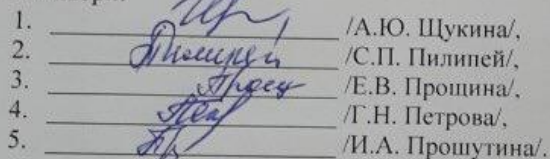 1. /А.Ю. Щукина/,
2. Пилипей /С.П. Пилипей/,
3. /Е.В. Прощина/,
4. /Г.Н. Петрова/,
5. /И.А. Прошутина/.